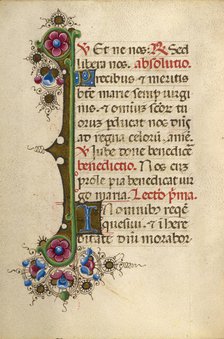 Et ne nos: R Sed
libera nos. absolutio.
Precibus et meritis
bte marie semp virgi
nis: et omiũ scõr
orus pducat nos dñs
ad regna celorũ. amẽ.
V Iube done benedicẽ
benedictio. Nos cũ
prole pia benedicat uir
go maria. Lectio p̃ma.
IN omnibus reqẽ
quesiui. et i here
ditate dñi morabor